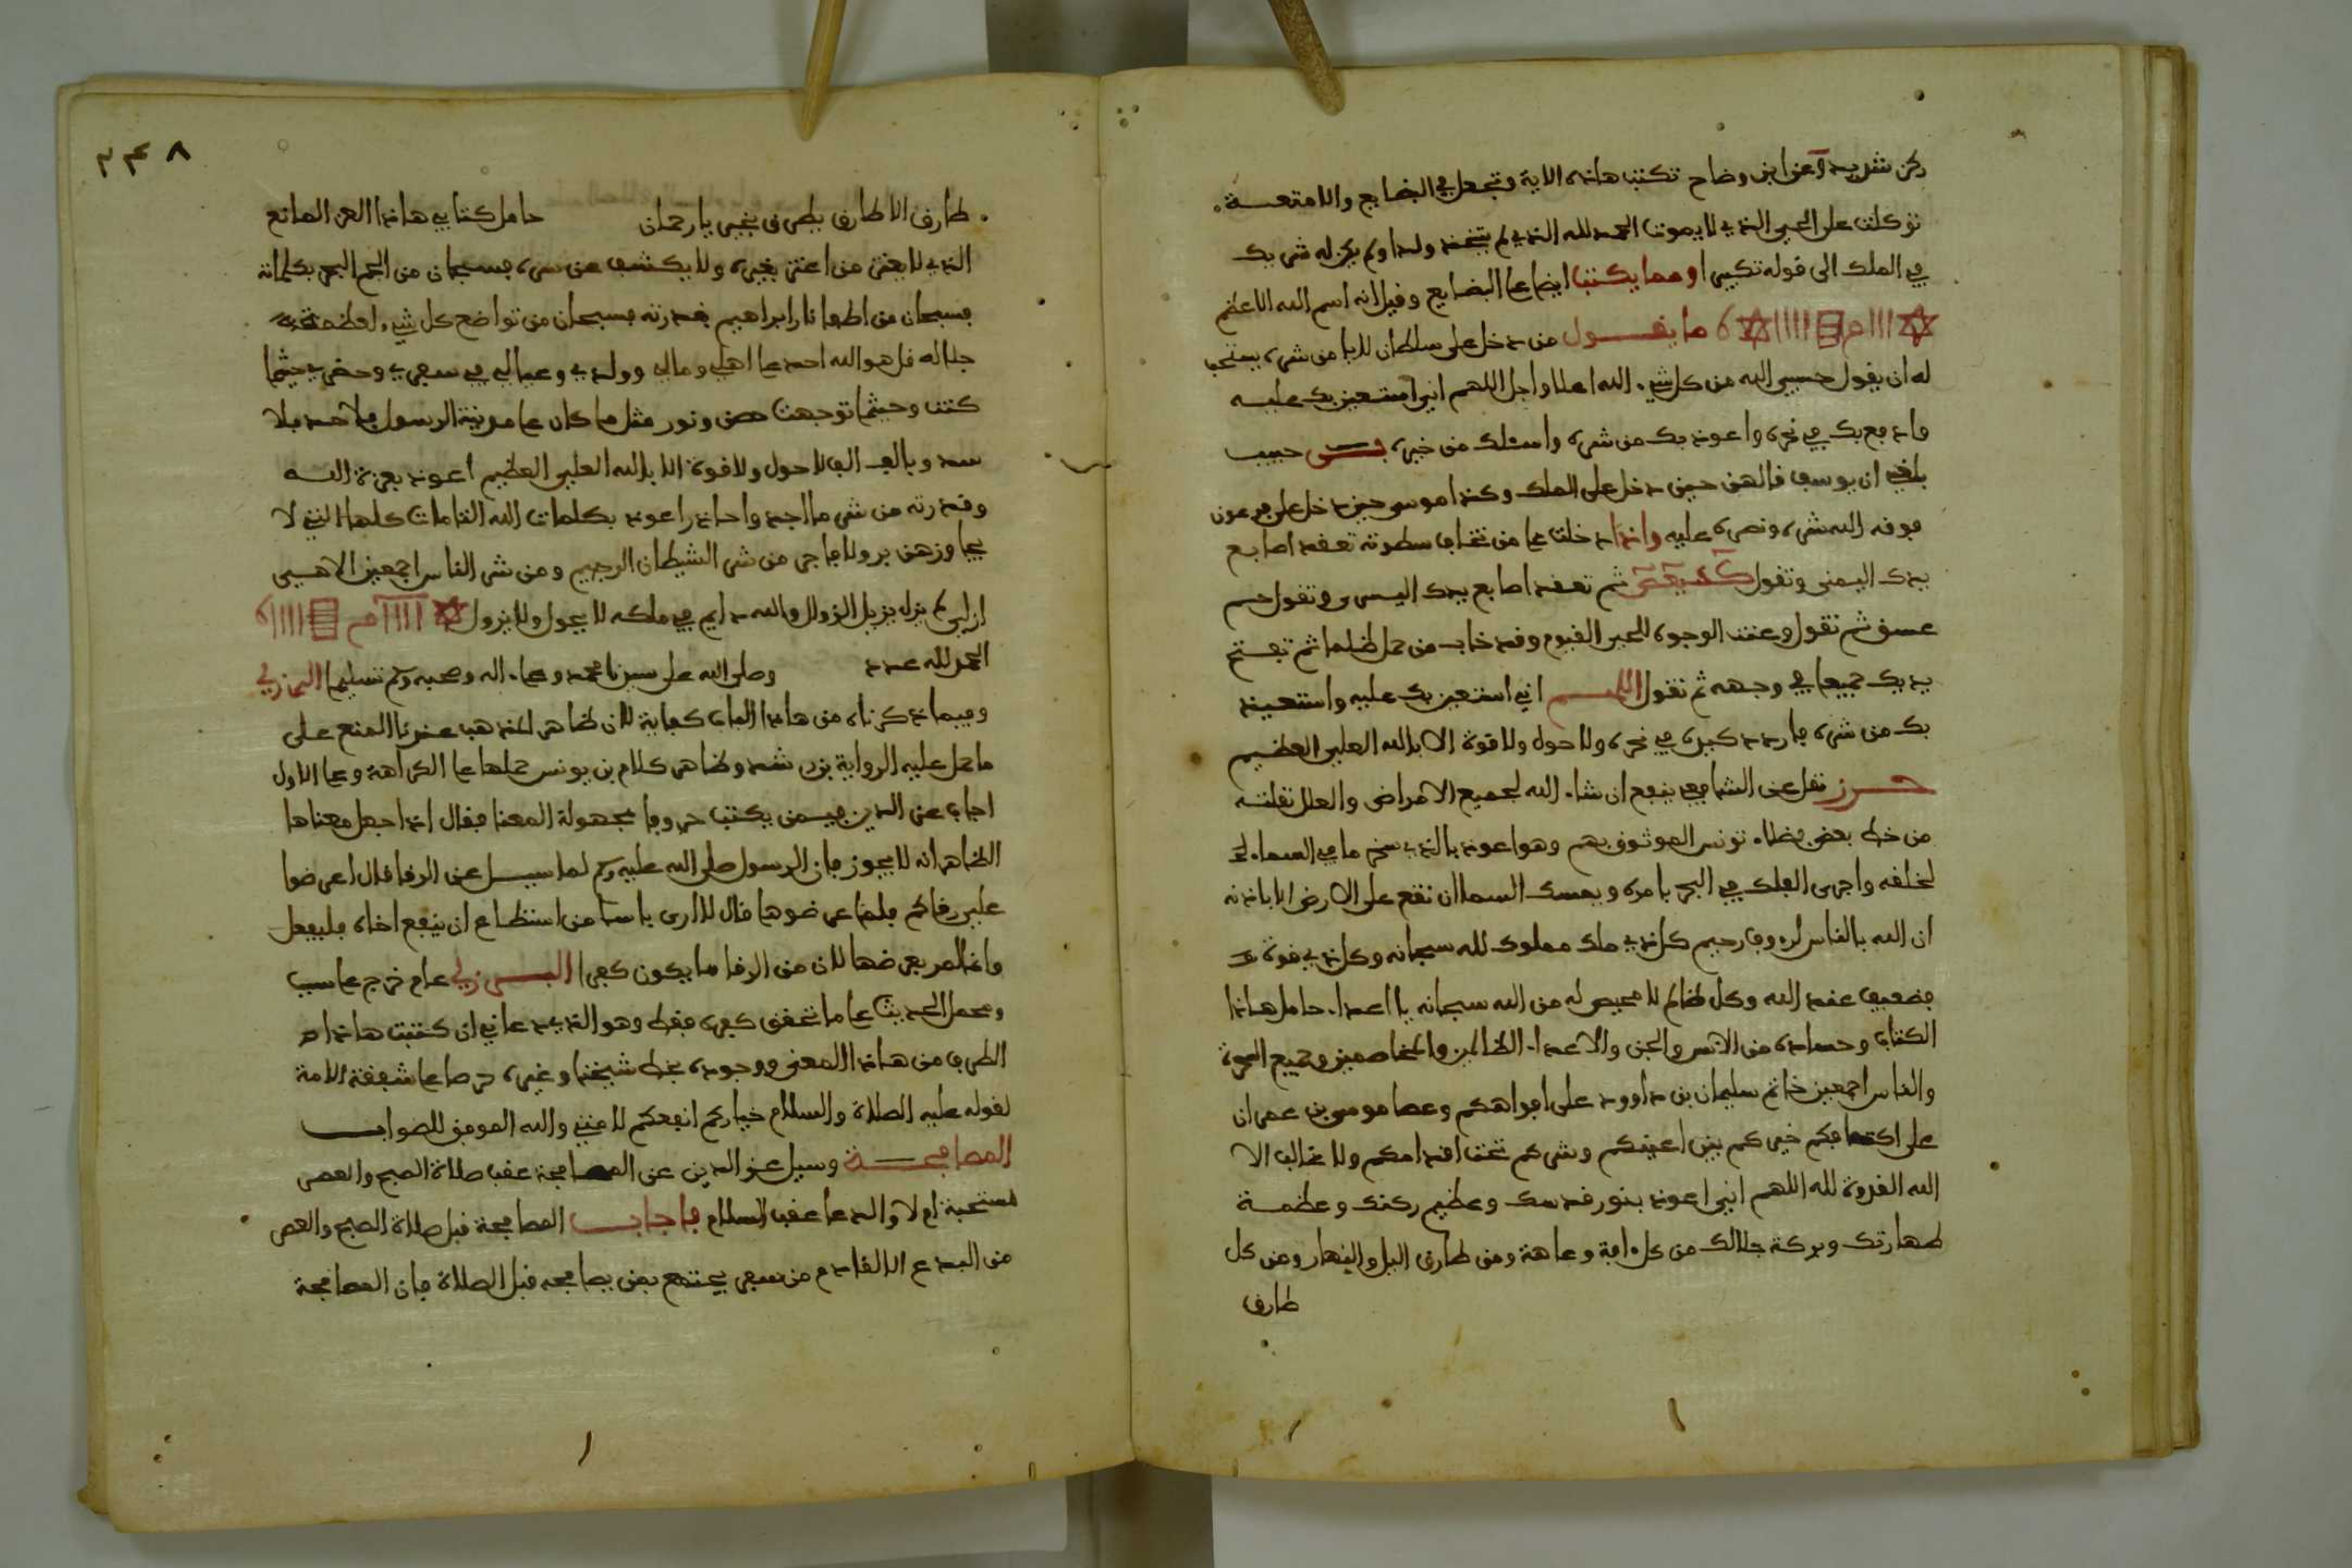 ركن شديد وعن ابن وضاح تكتب هاذه الاية وتجعل في البضايع والامتعـــة
توكلت على الحي الذي لا يموت الحمد لله الذي لم يتخذ ولدا ولم يكن له شريك
في الملك الى قوله تكبيرا ومما يكتب ايضا على البضايع وقيل انه اسم الله الاعظم
ما يقـــول من دخل على سلطان يخاف من شره يستحب
له ان يقول حسبي الله من كل شيء الله اعلا واجل اللهم اني استعين بك عليه
وادفع بك في نحره واعوذ بك من شره واسئلك من خيره حبيب
بلغني ان يوسف قالهن حين دخل على الملك وكذا موسى حين دخل على فرعون
فوقه الله شره ونصره عليه واذا دخلت على من تخاف سطوته تعقد اصابع
يدك اليمنى وتقول كهيعص ثم تعقد اصابع يدك اليسرى وتقول حم
عسق ثم تقول وعنت الوجوه للحي القيوم وقد خاب من حمل ظلما ثم تفتح
يديك جميعا في وجهه ثم تقول اللهـــم اني استعين بك عليه واستعيذ
بك من شره فاردد كيده في نحره ولا حول ولا قوة الا بالله العلي العظيم
حـــرز نقل عن الشافعي ينفع ان شاء الله لجميع الامراض والعلل نقلته
من خط بعض فضلاء تونس الموثوق بهم وهو اعوذ بالذي سخر ما في السماء
لخلقه واجرى الفلك في البحر بامره ويمسك السما ان تقع على الارض الا باذنه
ان الله بالناس لروف رحيم كل ذي ملك مملوك لله سبحانه وكل ذي قوة
فضعيف عند الله وكل ظالم لا محيص له من الله سبحانه يا اعداء حامل هاذا
الكتاب وحساده من الانس والجن والاعداء الظالمين والمخاصمين وجميع
والناس اجمعين خاتم سليمان بن داوود على افواهكم وعصا موسى بن عمران
على اكتافكم خيركم بين اعينكم وشركم تحت اقدامكم ولا غالب الا
الله القدرة لله اللهم اني اعوذ بنور قدسك وعظيم ركنك وعظمـــة
طهارتك وبركة جلالك من كل افة وعاهة ومن طارق اليل والنهار ومن كل
طارق
٣٤٨
طارق الا طارق يطرق بخير يا رحمان حامل كتابي هاذا العز المانع
الذي لا يعتز من اعتز بغيره ولا يكشف من ستره فسبحان من الجم البحر بكلماته
فسبحان من اطفا نار ابراهيم بقدرته فسبحان من تواضع كل شيء لعظمته
جلاله قل هو الله احد على اهلي ومالي وولدي وعيالي في سفري وحضري حيثما
كنت وحيثما توجهت حصن ونور مثل ما كان على مدينة الرسول
وبالف الف لا حول ولا قوة الا بالله العلي العظيم اعوذ بعزة اللـــه
وقدرته من شر ما اجد واحاذر اعوذ بكلمات الله التامات كلها التي لا
يجاوزهن بر ولا فاجر من شر الشيطان الرجيم ومن شر الناس اجمعين
ازلي لم يزل يزيل الزوال والله دايم في ملكه لا يحول ولا يزول
الحمد لله عدد وصلى الله على سيدنا محمد وعلى اله وصحبه وسلم تسليما البرزلي
وفيما ذكرناه من هاذا الباب كفاية لان ظاهر المذهب عندنا المنع على
ما حمل عليه الرواية بن رشد وظاهر كلام بن يونس حملها على الكراهة وعلى الاول
اجاب عز الدين فيمن يكتب حروفا مجهولة المعنا فقال اذا جهل معناها
الظاهر انه لا يجوز فان الرسول صلى الله عليه وسلم لما سيـــل عن الرقا قال اعرضوا
علي رقاكم فلما عرضوها قال لا ارى باسا من استطاع ان ينفع اخاه فليفعل
وانما امر بعرضها لان من الرقا ما يكون كفرا البـــرزلي عام خرج على سبب
ومحمل الحديث على ما تحقق كفره فقط وهو الذي دعاني ان كتبت هاذا
الطرف من هاذا المعنى ووجوده بخط شيخنا وغيره حرصا على شفقة الامة
لقوله عليه الصلاة والسلام خياركم انفعكم لامتي والله الموفق للصواب
المصافحـــة وسيل عز الدين عن المصافحة عقب صلاة الصبح والعصر
مستحبة ام لا والدعا عقب السلام فاجابـــ المصافحة قبل صلاة الصبح والعصر
من البدع الا لقادم من سفر يجتمع بمن يصافحه قبل الصلاة فان المصافحة